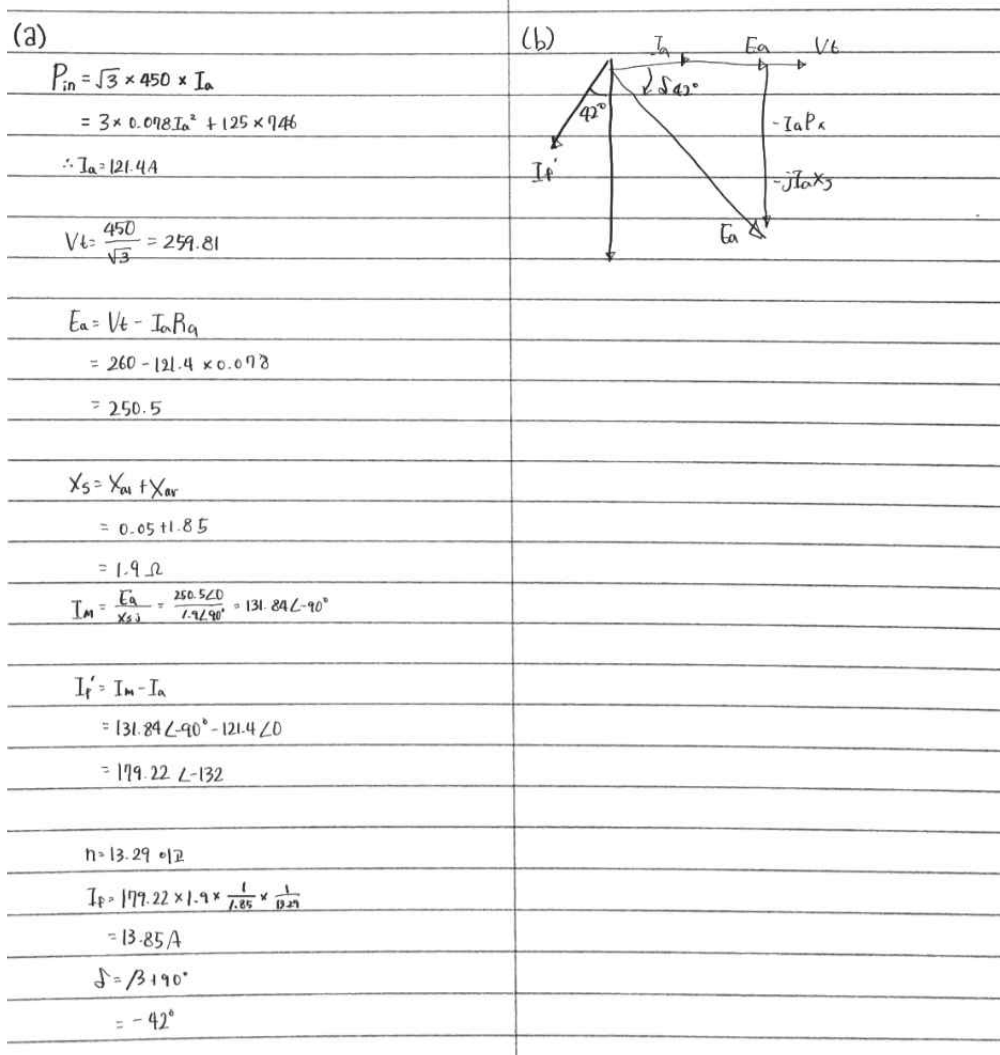 (a)
P_in = √3 × 450 × I_a
= 3 × 0.078 I_a² + 125 × 746
∴ I_a = 121.4A
V_t = 450/√3 = 259.81
E_a = V_t - I_a R_a
= 260 - 121.4 × 0.078
= 250.5
X_s = X_al + X_ar
= 0.05 + 1.85
= 1.9 Ω
I_M = E_a/X_s j = 250.5∠0/1.9∠90° = 131.84∠-90°
I_f' = I_M - I_a
= 131.84∠-90° - 121.4∠0
= 179.22 ∠-132
n = 13.29 이고
I_f = 179.22 × 1.9 × 1/1.85 × 1/13.29
= 13.85A
δ = β + 90°
= -42°
(b)
I_a E_a V_t
δ 42°
42°
I_f'
-I_a R_x
-jI_a X_s
E_a